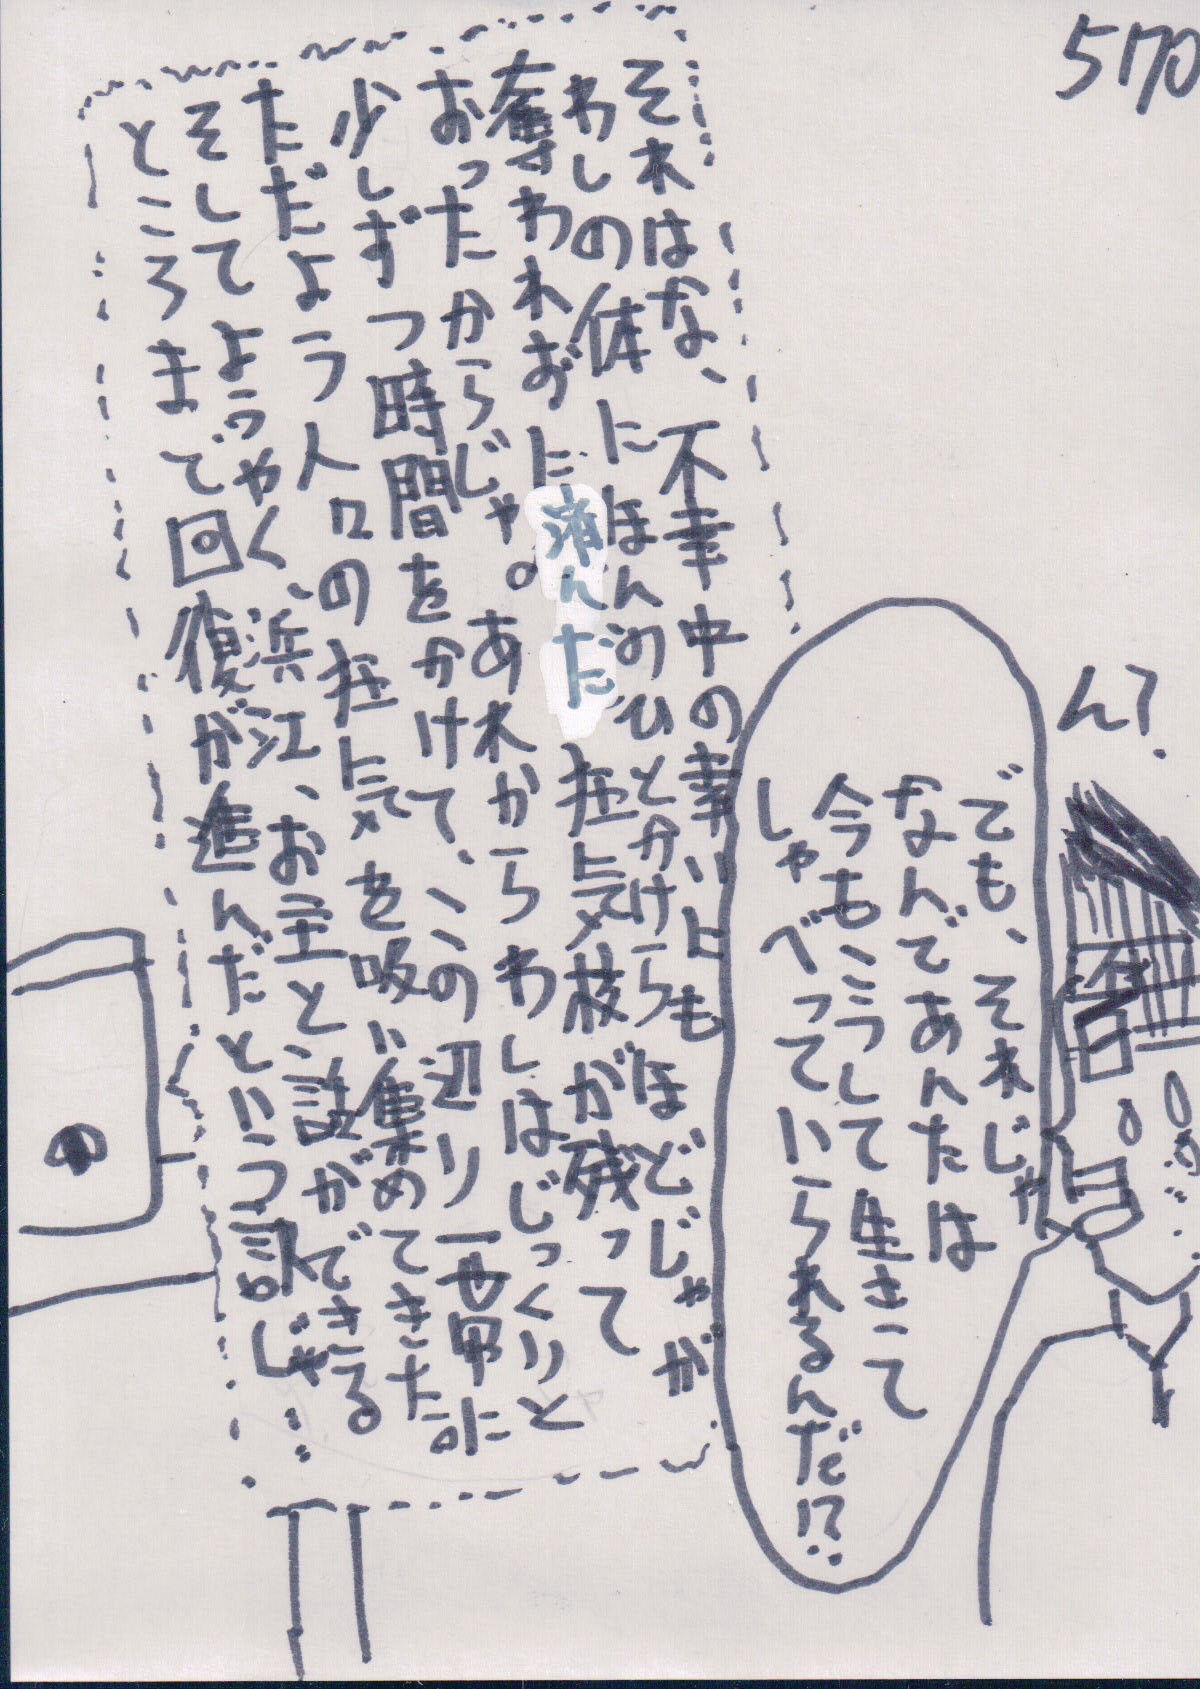 5170
ん?
でも、それじゃ
なんであんたは
今もこうして生きて
しゃべっていられるんだ!?
それはな、不幸中の幸いとも
わしの体にほんのひとかけらほどじゃが
奪われずに済んだ狂気枝が残って
おったからじゃ。あれからわしはじっくりと
少しずつ時間をかけて、この辺り一帯に
ただよう人口の狂気を吸い集めてきた
そしてようやく、浜江、お主と話ができる
ところまで回復が進んだという訳じゃ…